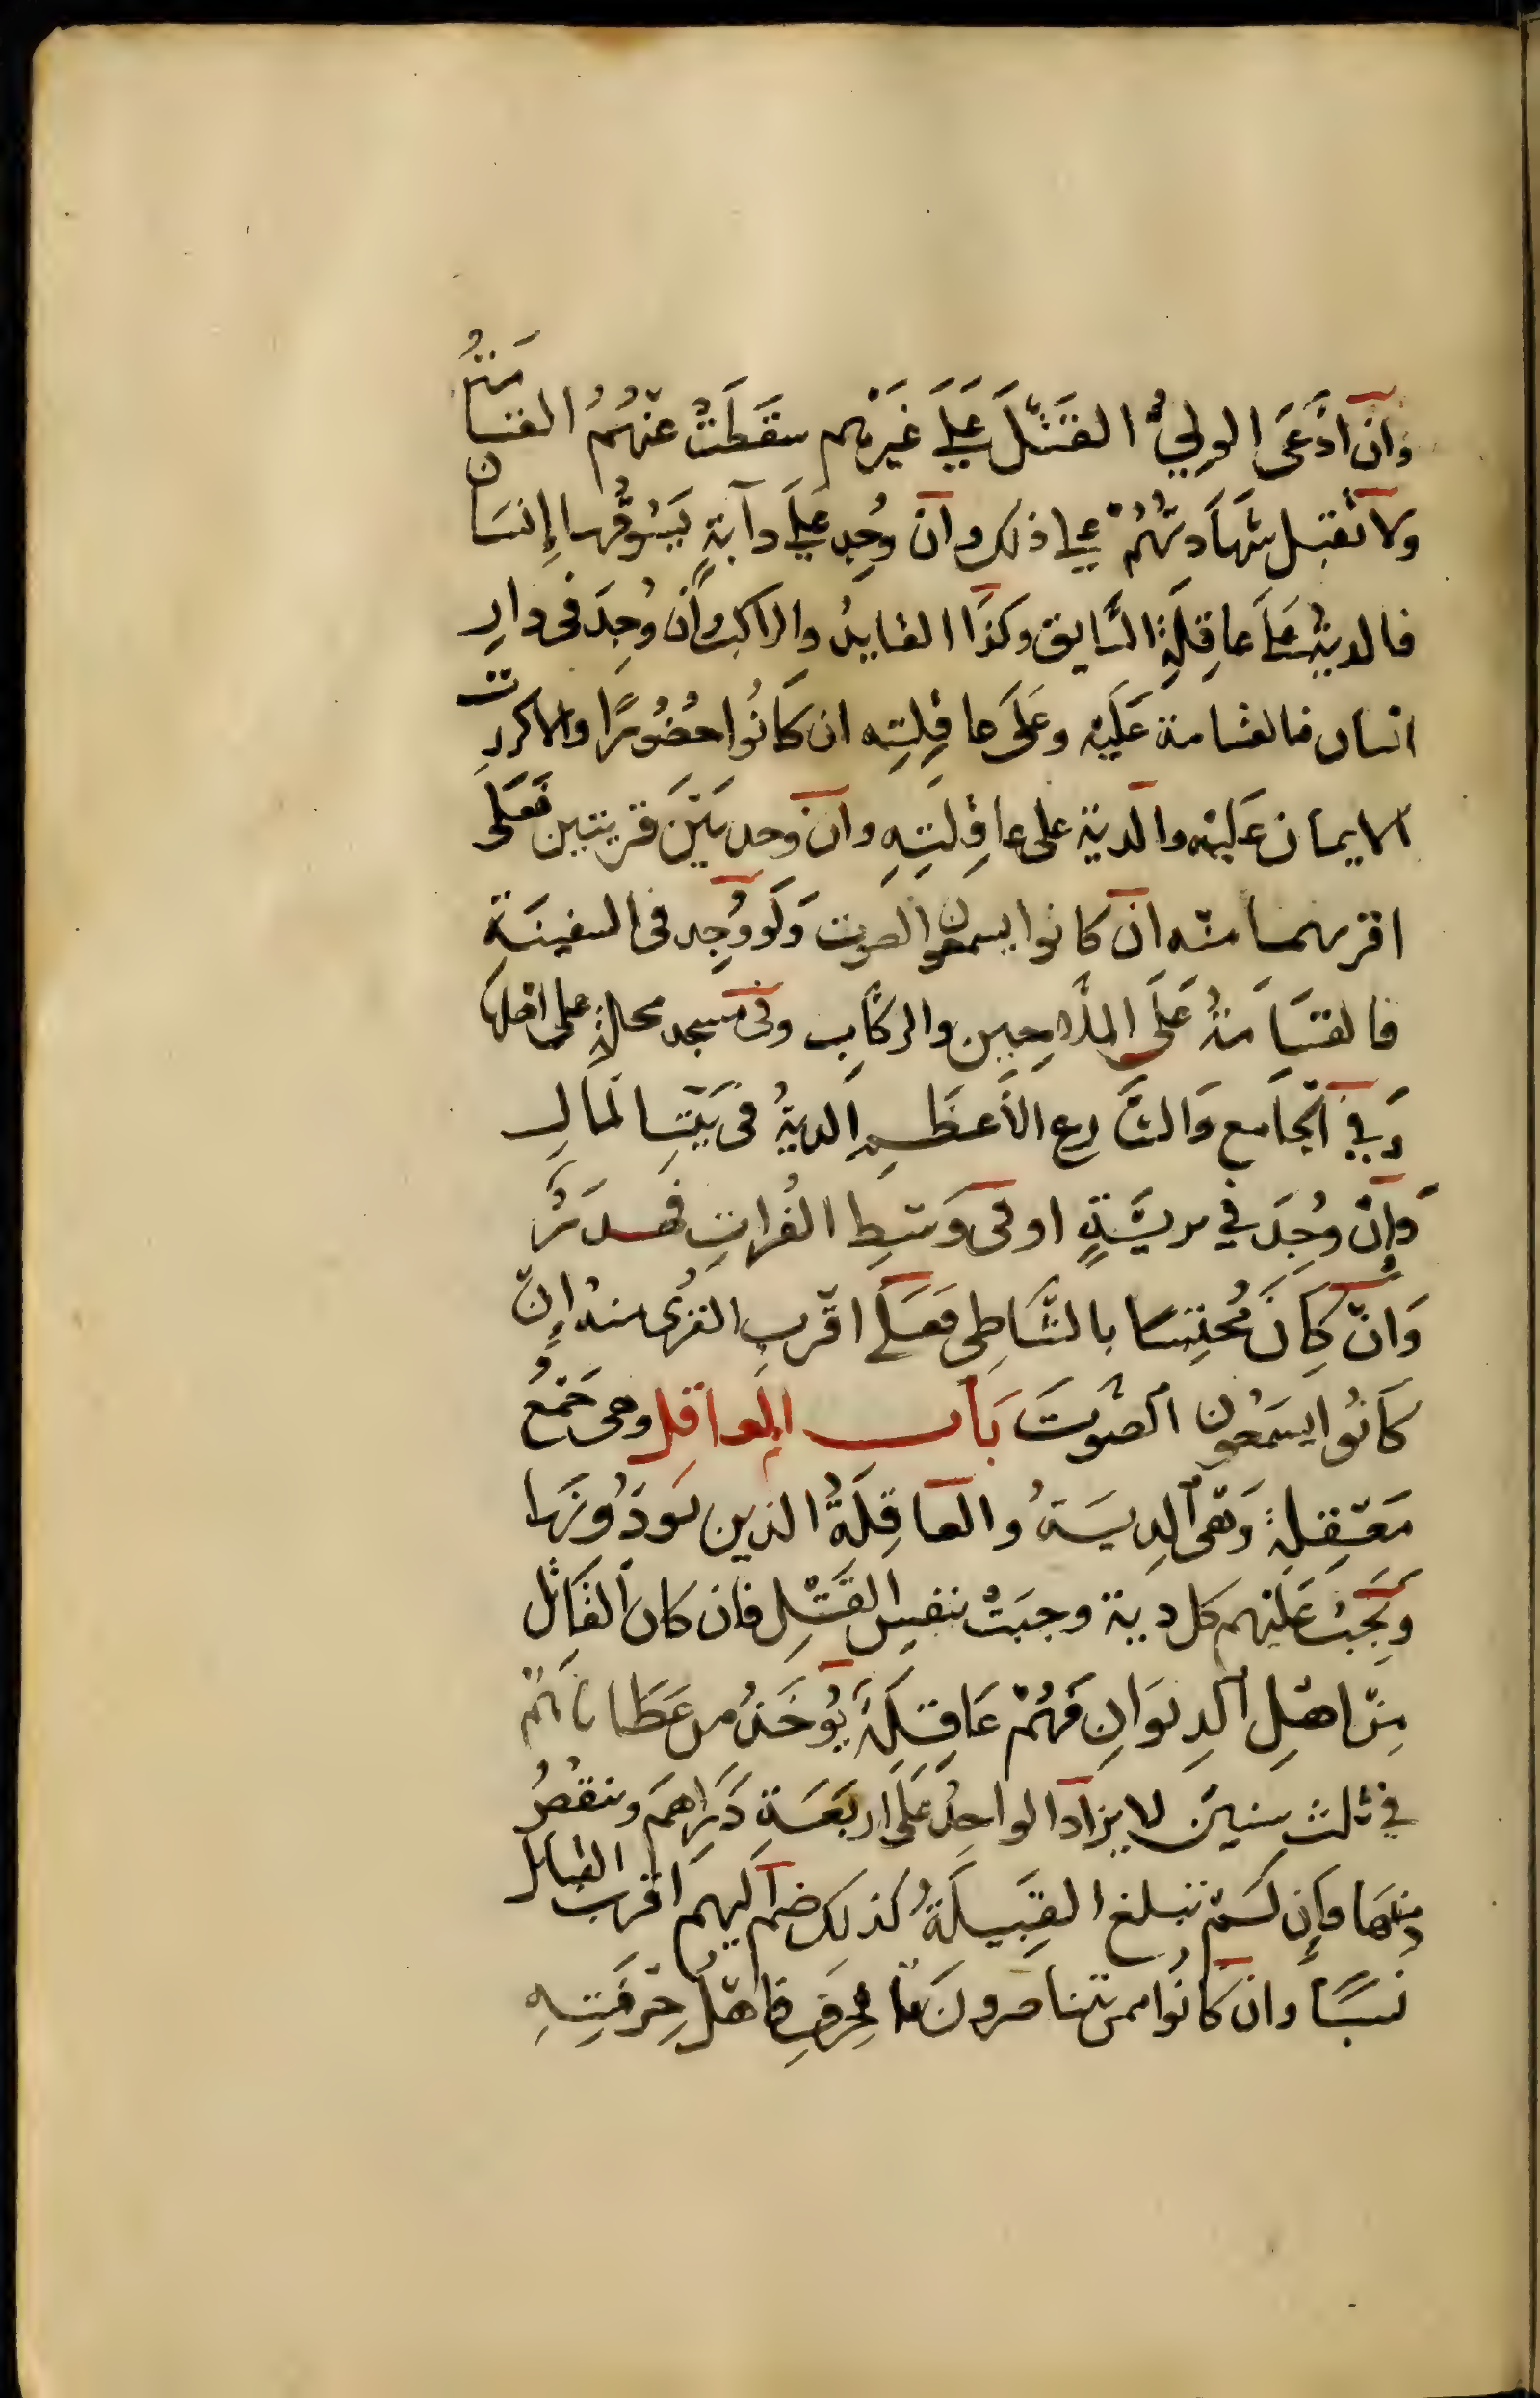 وَانّ ادَّعَى الوليُّ القَتْلَ عَلَى غَيْرِهم سقَطَتْ عَنْهُمُ القسامَةُ
ولا تُقبَل شَهَادَتُهُمْ على ذلك وان وُجِد عَلَى دابةٍ يَسُوقُها إنسَان
فالديةُ عَلَى عاقِلَةِ السَّايق وكَذَا القايدُ والراكبُ وأن وُجِدَ فى دارِ
انسان فالقسامة عَلَيْه وعَلَى عاقِلتِه ان كَانُوا حضُورًا والا كررت
الايمان عَلَيْه والدية على عاقِلَتِهِ وان وجد بَيْنَ قريتين فَعَلَى
اقربهما منه ان كانوا يسمعون الصوت وَلَو وُجِد فى السفينَةِ
فالقسَامَةُ عَلَى الملّاحين والركّاب وفى مسجد محلةٍ على اهلها
وَفي الجامع وَالشَّارع الأَعظَم الديةُ فى بَيْتِ المَالِ
وَإنّ وُجِدَ في بريَّةٍ او فى وَسَطِ الفُراتِ فهدَرٌ
وَانّ كَانَ مُحتبِسا بالشَّاطِى فعَلَى اقرَبِ القرى منه إنّ
كَانُوا يسمَعُون الصَّوتَ بَاب المعاقل وهى جَمْعُ
مَعْقِلةٍ وَهى الدِيَةُ والعاقِلَةُ الذين يودُونَها
وَتَجِبُ عَلَيْهم كل دية وجبَتْ بنفسِ القَتْلِ فان كان القَاتل
مِنْ اهْلِ الدِيوَانِ فَهُمْ عَاقِلَةٌ يُوخَذُ من عَطَاياهُمْ
في ثلث سنين لا يزاد الواحِدُ عَلَى اربَعَةِ دَرَاهمَ وينقُصُ
منها وَإِن لَمْ تبلغ القَبيلَةُ كذلك ضم اليهم اقرب القبايل
نَسَبًا وان كانُوا ممن يتناصرونَ بالحِرَفِ فاهْلُ حِرْفَتِهِ